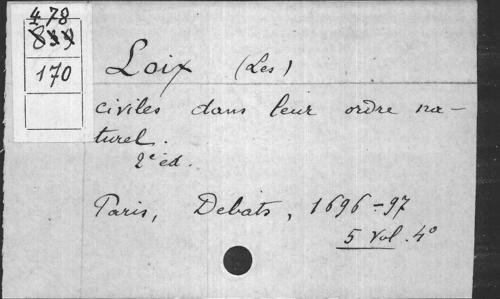 478
839
170
Loix (Les)
civiles dans leur ordre na-
turel.
2e éd.
Paris, Debats, 1696-97
5 vol. 4o